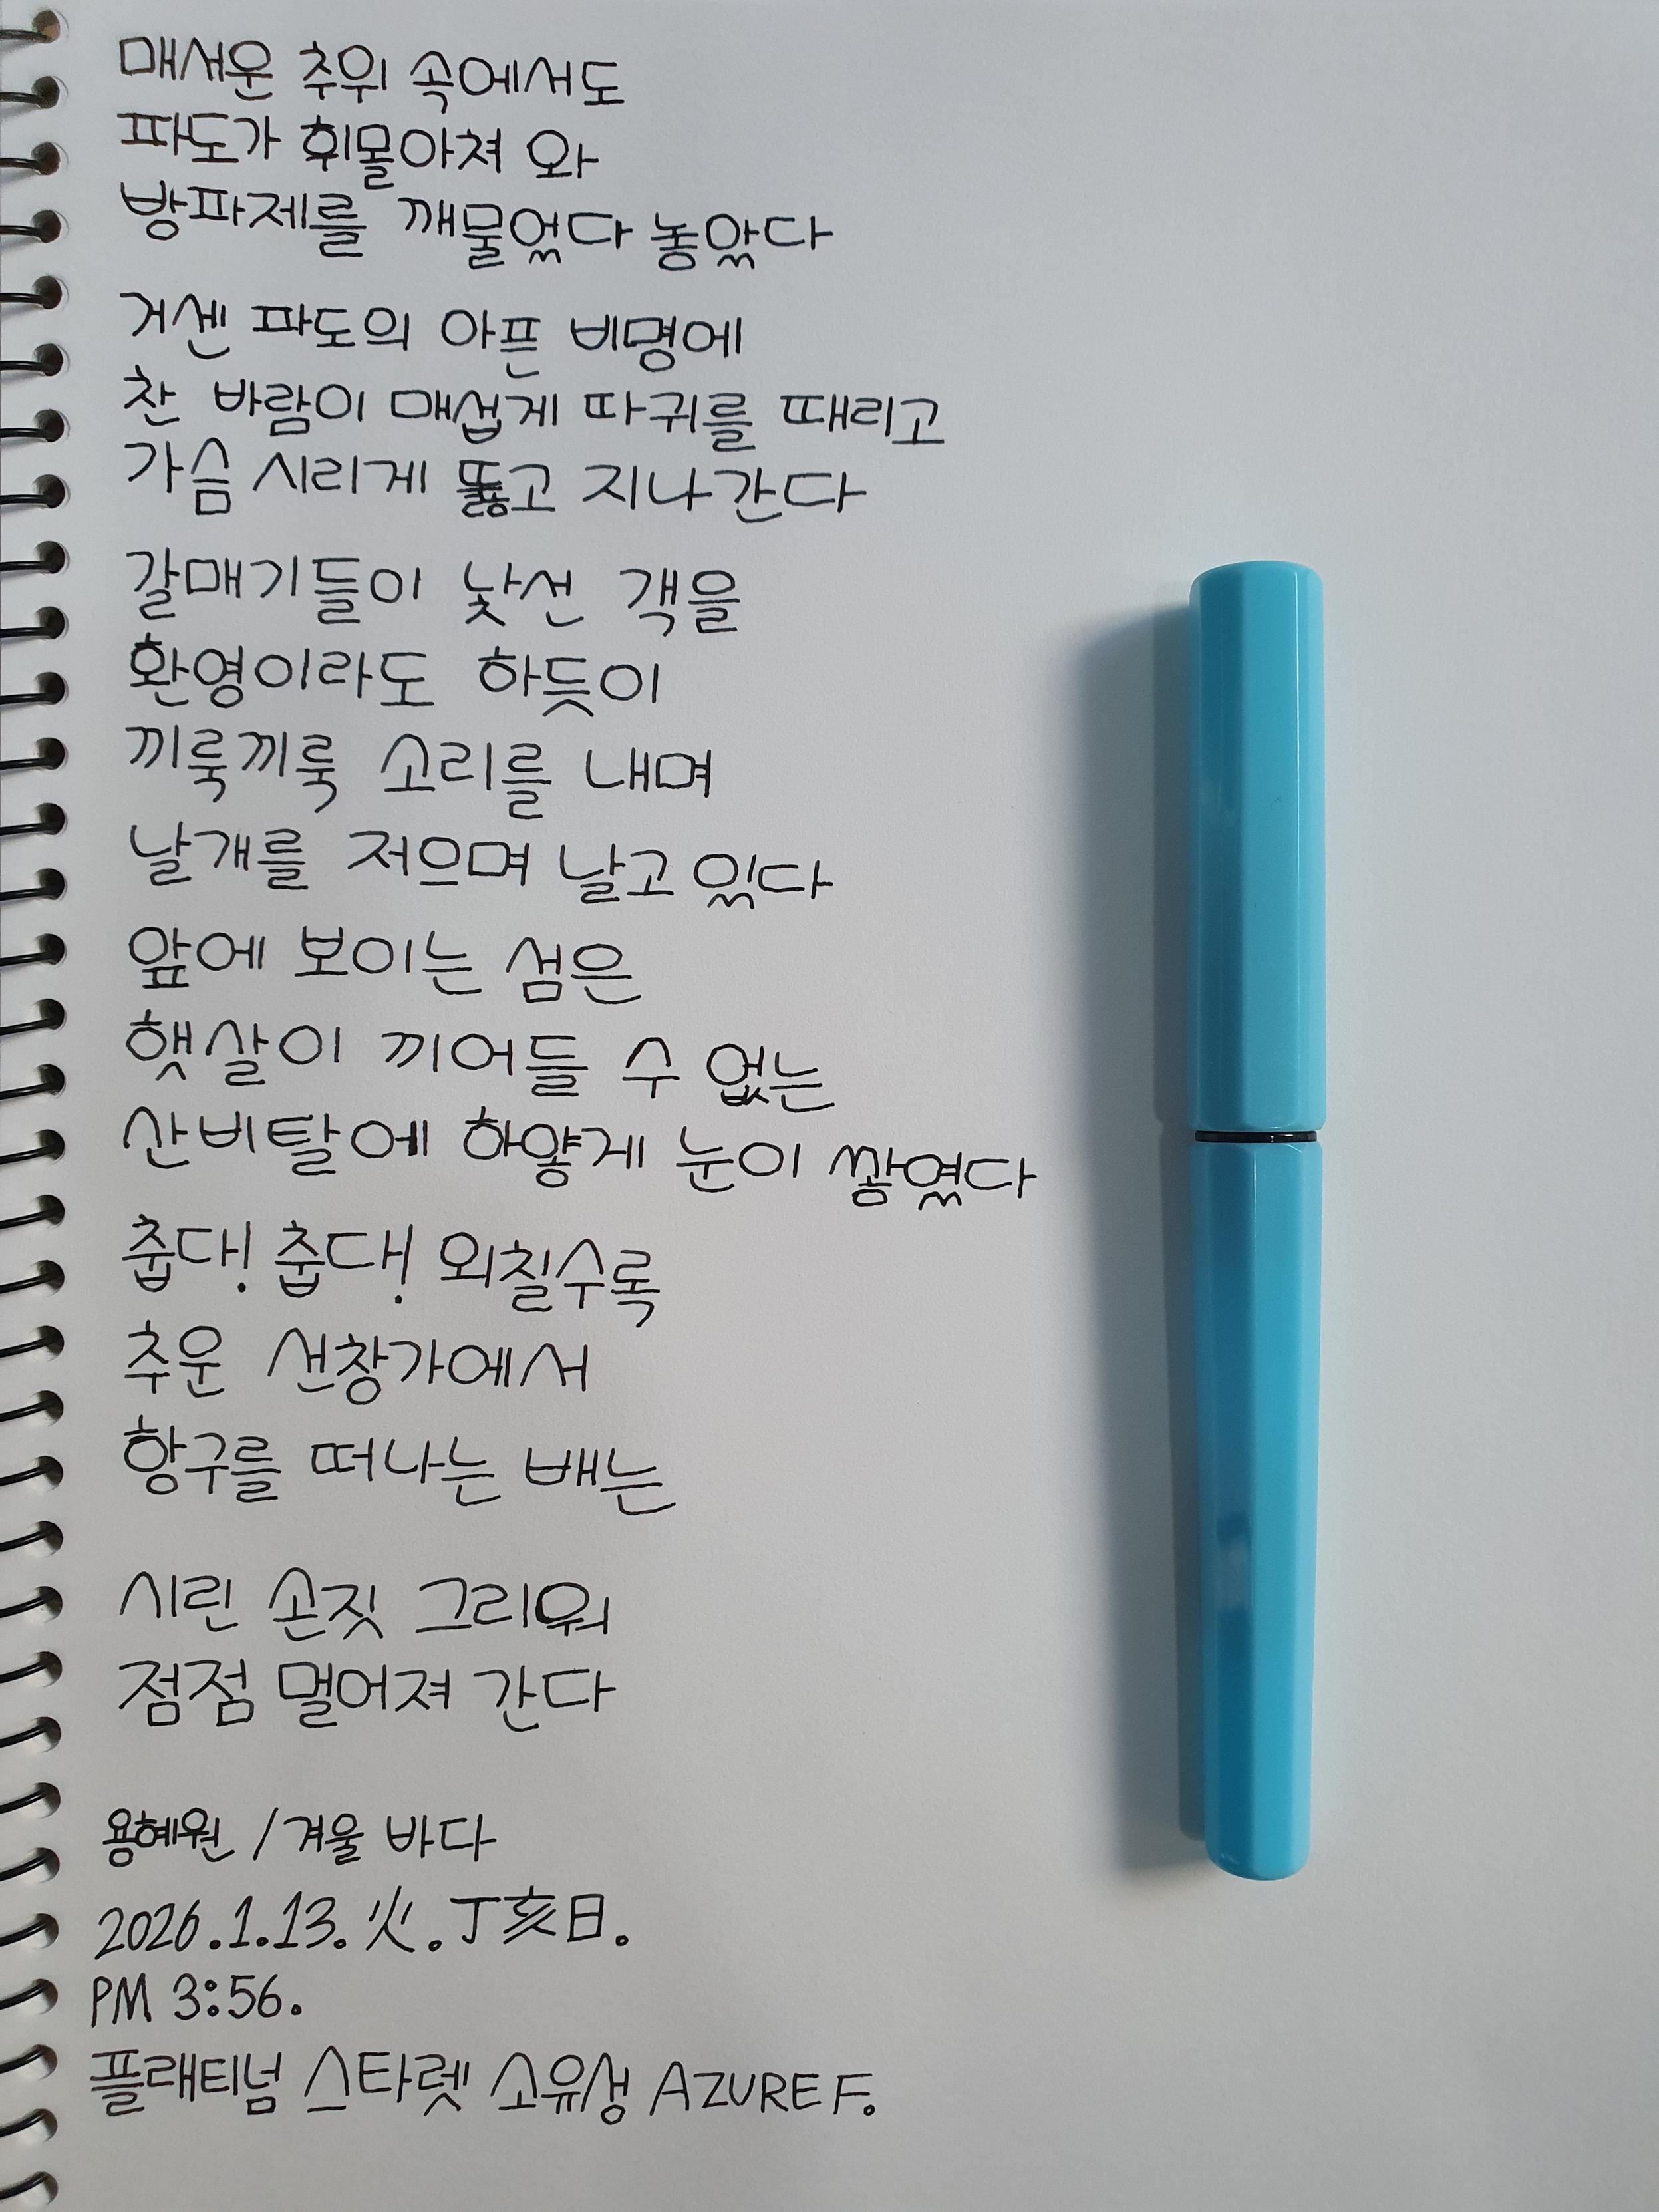 매서운 추위 속에서도
파도가 휘몰아쳐 와
방파제를 깨물었다 놓았다
거센 파도의 아픈 비명에
찬 바람이 매섭게 따귀를 때리고
가슴 시리게 뚫고 지나간다
갈매기들이 낯선 객을
환영이라도 하듯이
끼룩끼룩 소리를 내며
날개를 저으며 날고 있다
앞에 보이는 섬은
햇살이 끼어들 수 없는
산비탈에 하얗게 눈이 쌓였다
춥다! 춥다! 외칠수록
추운 선창가에서
항구를 떠나는 배는
시린 손짓 그리워
점점 멀어져 간다
용혜원 / 겨울 바다
2026.1.13.火.丁亥日.
PM 3:56.
플래티넘 스타렛 소유생 AZURE F.